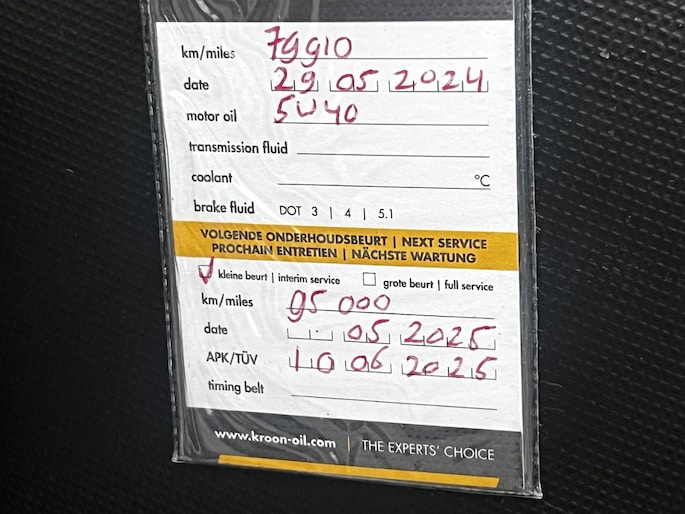 km/miles 79910
date 29 05 2024
motor oil 5W40
transmission fluid
coolant °C
brake fluid DOT 3 | 4 | 5.1
VOLGENDE ONDERHOUDSBEURT | NEXT SERVICE
PROCHAIN ENTRETIEN | NÄCHSTE WARTUNG
kleine beurt | interim service grote beurt | full service
km/miles 95 000
date 05 2025
APK/TÜV 10 06 2025
timing belt
www.kroon-oil.com | THE EXPERTS' CHOICE